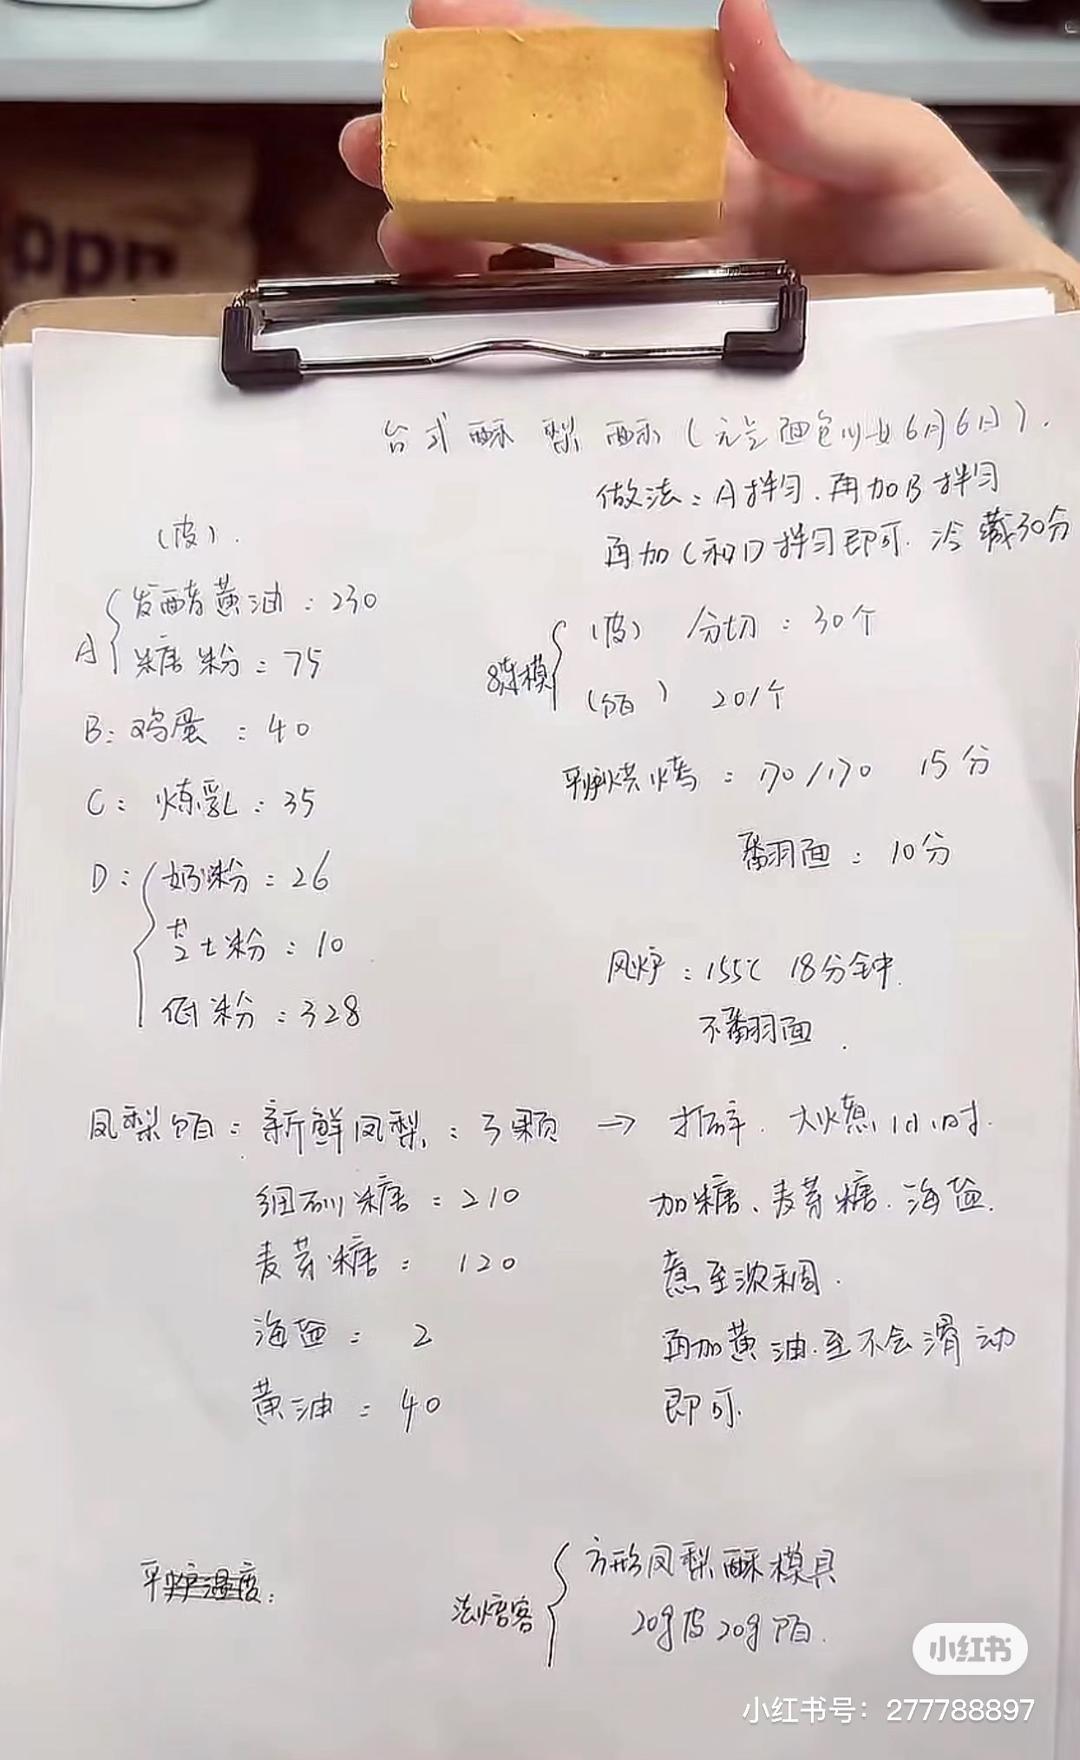 ppn
台式酥梨酥(元兰面包川女6月6日).
做法:A拌匀.再加B拌匀
再加C和D拌匀即可.冷藏30分
(皮).
A
发酵黄油:230
糖粉:75
B:鸡蛋:40
C:炼乳:35
D:奶粉:26
芝士粉:10
低粉:328
8连模
(皮) 分切:30个
(馅) 20/个
平炉烘烤:170/170 15分
翻面:10分
风炉:155℃ 18分钟.
不翻面.
凤梨馅:新鲜凤梨:3颗 → 打碎.大火煮1小时.
细砂糖:210
加糖、麦芽糖.海盐.
麦芽糖:120
煮至浓稠.
海盐:2
再加黄油.至不会滑动
黄油:40
即可.
平炉温度:
法焙客
方形凤梨酥模具
20g皮20g馅.
小红书
小红书号:277788897